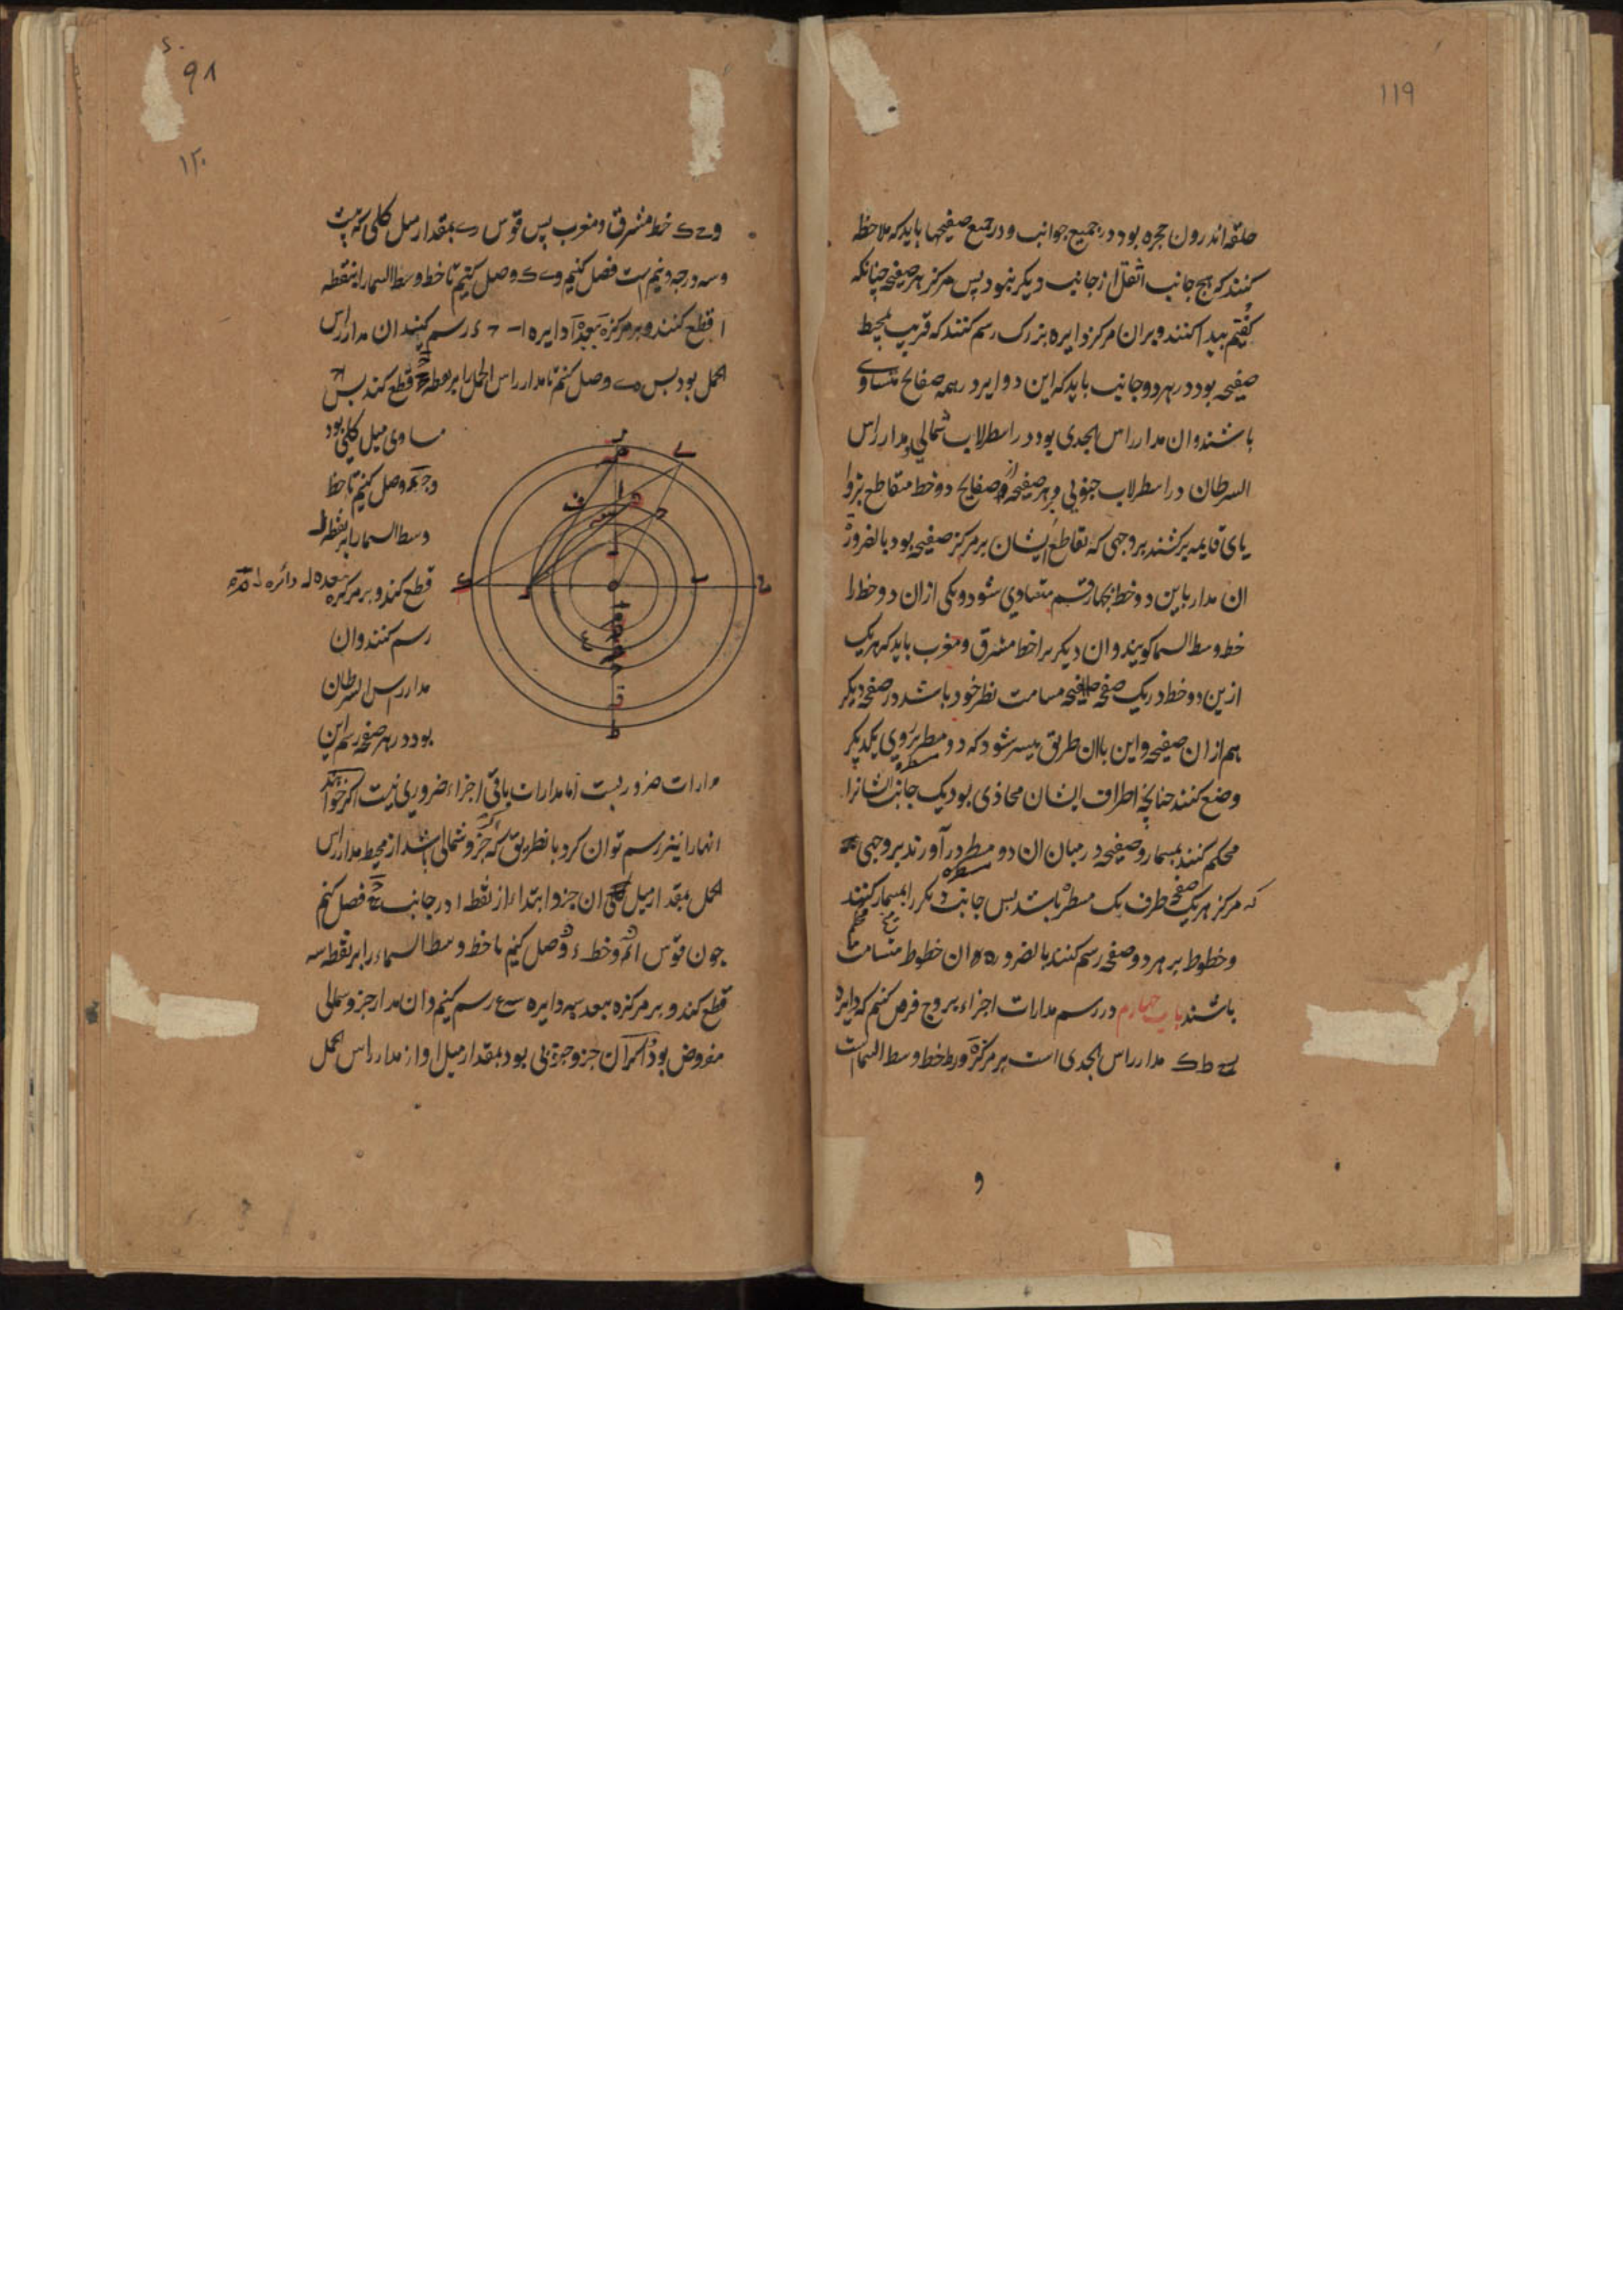 ۱۱۹
حلقه اندرون حجره بود در جمیع جوانب و در جمیع صفیحها باید که ملاحظه
کنند که هیچ جانب اثقل از جانب دیکر نبود پس مرکز هر صفیحه چنانکه
کفتیم پیدا کنند و بران مرکز دایره بزرک رسم کنند که قریب بمحیط
صفیحه بود در هر دو جانب باید که این دوایر در همه صفایح متساوی
باشند و ان مدار راس الجدی بود در اسطرلاب شمالی و مدار راس
السرطان در اسطرلاب جنوبی و بر هر صفحه از صفایح دو خط متقاطع بزوا
یای قایمه برکشند بر وجهی که تقاطع ایشان بر مرکز صفیحه بود بالضرورة
ان مدار باین دو خط بچهار قسم متساوی شود و یکی ازان دو خط را
خط وسط السما کویند و ان دیکر را خط مشرق و مغرب باید که هر یک
ازین دو خط در یک صفحه صفیحه مسامت نظر خود باشد در صفحه دیکر
هم ازان صفیحه و این باان طریق میسر شود که دو مسطره بر روی یکدیکر
وضع کنند چنانچه اطراف ایشان محاذی بود یک جانب ایشانرا
محکم کنند بمسمار و صفیحه در میان ان دو مسطره در آورند بر وجهی
که مرکز هر یک صفحه طرف یک مسطره باشد پس جانب دیکر را بمسمار محکم کنند
و خطوط بر هر دو صفحه رسم کنند بالضروره ان خطوط متسامت
باشند باب چهارم در رسم مدارات اجزاء بروج فرض کنیم که دایره
ی ح ط ک مدار راس الجدی است بر مرکز ه و ر ط خط وسط السماست
و
۹۸
۱۲۰
و ح ک خط مشرق و مغرب پس قوس ری بمقدار میل کلی که بیست
و سه درجه و نیم است فصل کنیم و ی ک وصل کنیم تا خط وسط السما را بنقطه
ا قطع کنند و بر مرکز ه ببعد ه ا دایره ا ب ج د رسم کنند ان مدار راس
الحمل بود پس ه ی وصل کنیم تا مدار راس الحمل را بر نقطه قطع کند پس
مساوی میل کلی بود
وصل کنیم تا خط
وسط السما را بر نقطه ل
قطع کند و بر مرکز ه ببعد ه ل دائره ل م
رسم کنند و ان
مدار راس السرطان
بود در هر صفحه رسم این
مدارات ضروریست اما مدارات باقی اجزاء ضروری نیست اکر خواهند
انها را نیز رسم توان کرد بانطریق که اکر جزو شمالی باشد از محیط مدار راس
الحمل بمقدار میل ان جزو ابتداء از نقطه ا در جانب فصل کنیم
چون قوس و خط وصل کنیم تا خط وسط السماء را بر نقطه سه
قطع کند و بر مرکز ه ببعد سه دایره سه ع رسم کنیم و ان مدار جزو شمالی
مفروض بود و اکر ان جزو جنوبی بود بمقدار میل او از مدار راس الحمل